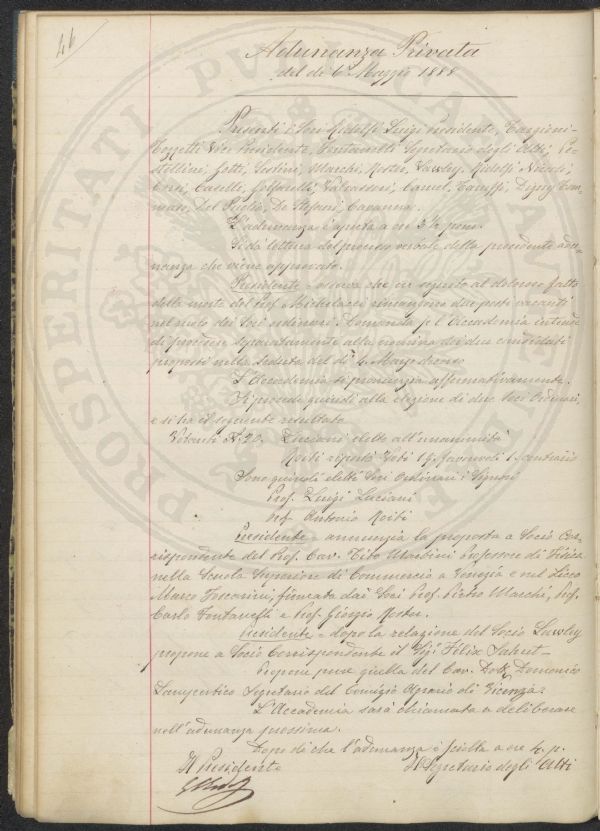 46
Adunanza Privata
del dì 6 Maggio 1888
Presenti i Soci Ridolfi Luigi Presidente, Targioni-
Tozzetti Vice Presidente, Fontanelli Segretario degli Atti, Pe-
stellini, Gotti, Sestini, Marchi, Roster, Lawley, Ridolfi Niccolò,
Corsi, Caselli, Valvassori, Camel, Caruffi, Digny Tom-
maso, Del Puglia, De Stefani, Cavanna.
L'adunanza è aperta a ore 2½ pom.
Si dà lettura del processo verbale della precedente adu-
nanza che viene approvato.
Presidente - osserva che in seguito al doloroso fatto
della morte del Prof. Michelacci rimangono due posti vacanti
nel ruolo dei Soci ordinari. Domanda se l'Accademia intende
di procedere separatamente alla nomina dei due candidati
proposti nella seduta del dì 4 Marzo decorso.
L'Accademia si pronunzia affermativamente.
Si procede quindi alla elezione di due Soci Ordinari,
e si ha il seguente resultato
Votanti N. 20. Luciani eletto all'unanimità
Roiti riportò Voti 19 favorevoli 1 contrario
Sono quindi eletti Soci Ordinari i Signori
Prof. Luigi Luciani
Prof. Antonio Roiti
Presidente - annunzia la proposta a Socio Cor-
rispondente del Prof. Cav. Tito Martini Professore di Fisica
nella Scuola Superiore di Commercio a Venezia e nel Liceo
Marco Foscarini, firmata dai Soci Prof. Pietro Marchi, Prof.
Carlo Fontanelli e Prof. Giorgio Roster.
Presidente - dopo la relazione del Socio Lawley
propone a Socio Corrispondente il Sig. Félix Sahut
Propone pure quella del Cav. Dott. Domenico
Lampertico Segretario del Comizio Agrario di Vicenza.
L'Accademia sarà chiamata a deliberare
nell'adunanza prossima.
Dopo di che l'adunanza è sciolta a ore 4 p.
Il Presidente Il Segretario degli Atti
PROSPERITATI PUBLICAE